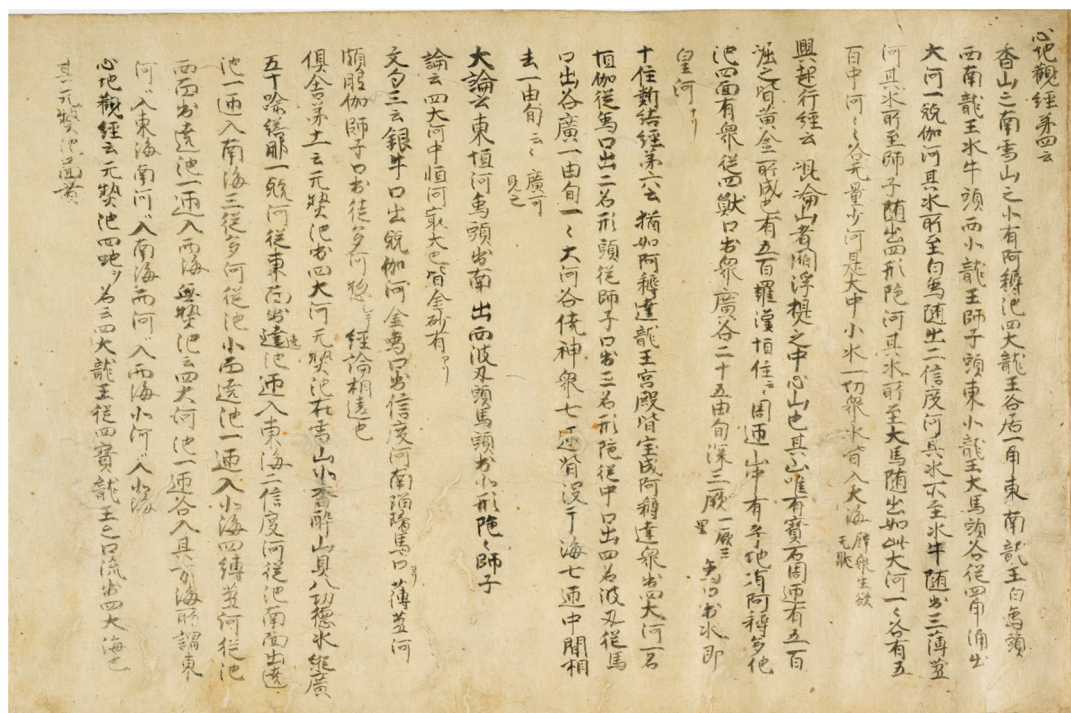 心地觀經第四云
香山之南雪山之小有阿耨池四大龍王各居一角東南龍王白象頭
西南龍王水牛頭西小龍王師子頭東小龍王大馬頭各從四角涌出
大河一殑伽河其水所至白象随出二信度河其水所至水牛随出三薄芻
河其水所至師子随出四形陁河其水所至大馬随出如此大河一〻各有五
百中河〻〻各无量少河是大中小水一切衆水皆入大海
興起行經云 崑崙山者閻浮提之中心山也其山唯有寶石周迊有五百
窟〻皆黄金所成常有五百羅漢恒住〻周迊山中有
池四面有衆從四獸口出衆廣各二十五由旬深三厥一厥三里 象口出水即
皇河ナリ
十住断結經第六云 猶如阿耨達龍王宮殿皆宝成阿耨達泉出四大河一名
恒伽從象口出二名形頭從師子口出三名形陁從牛口出四名波叉從馬
口出各廣一由旬一〻大河各
去一由旬云〻廣可見之
大論云東恒河象頭出南 出西波叉頭馬頭出小形陁〻師子
論云四大河中恒河最大也皆金砂有
文句三云銀牛口出殑伽河金象口出信度河南瑠璃馬口 薄芻河
頗胝伽師子口出徒多河 經論相違也
俱舎第十一云元熱池出四大河元熱池在雪山小香酔山具八功德水縱廣
五十踰繕那一殑河從東面出遶池一迊入東海二信度河從池南面出遶
池一迊入南海三徒多河從池小面遶池一迊入小海四縛芻河從池
西面出遶池一迊入西海 熱池云四大河池一迊各入其方海所謂東
河〻入東海南河〻入南海西河〻入西海小河〻入小海
心地觀經云元熱池四地 四大龍王從四寶龍王之口流出四大海也
其元熱池